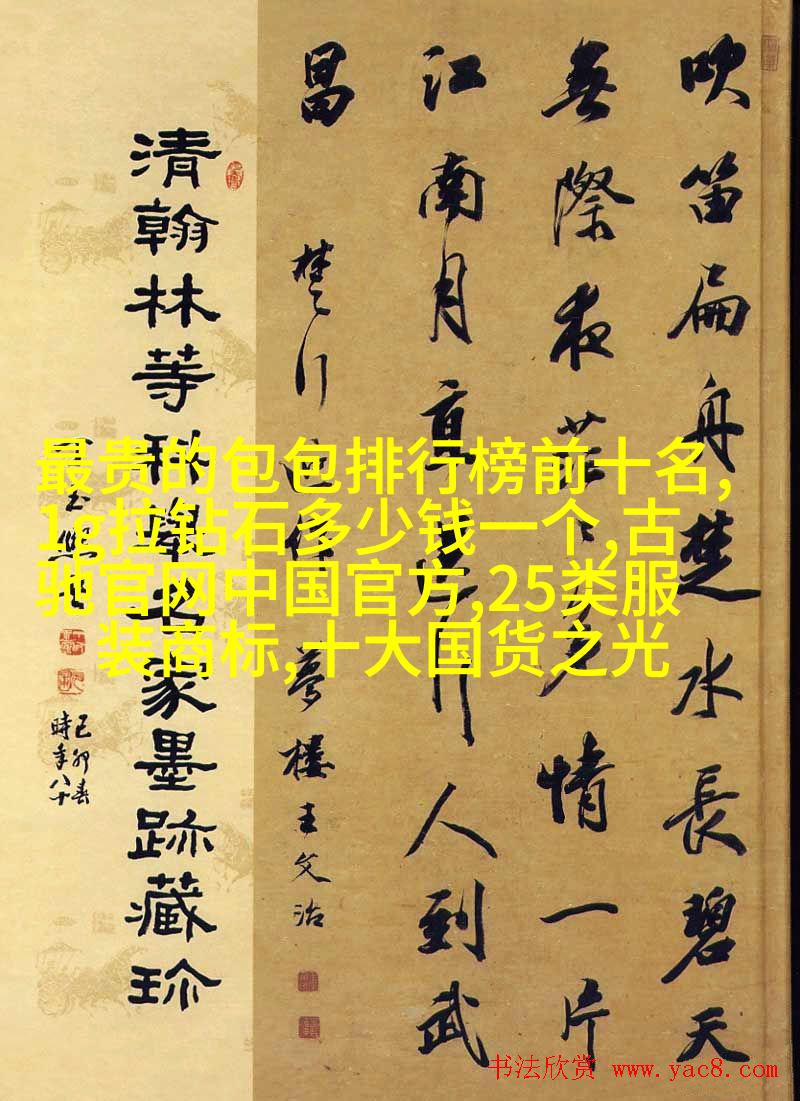 吹笛扁舟楚水長碧天
無際夜茫〻多情一片
江南月行人到武
昌 楚行近作 夢樓王文治
清翰林等名家墨跡藏珍
己卯春
時年八十
最贵的包包排行榜前十名,
1g拉钻石多少钱一个,古
驰官网中国官方,25类服
装商标,十大国货之光
书法欣赏 www.yac8.com